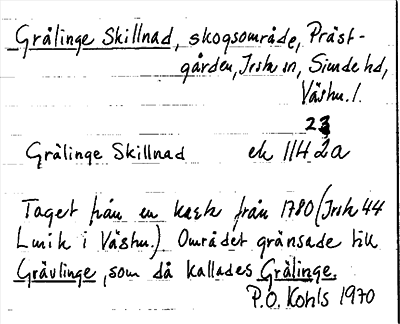 Grålinge Skillnad, skogsområde, Präst-
gården, Irsta sn, Siende hd,
Västm. l.
23
Grålinge Skillnad ek 11H 2a
Taget från en karta från 1780 (Irsta 44
Lmtk i Västm.) Området gränsade till
Grävlinge, som då kallades Grålinge.
P.O. Kohls 1970